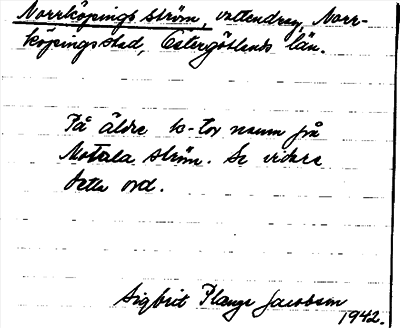 Norrköpings ström, vattendrag, Norr-
köpings stad, Östergötlands län.
På äldre k-tor namn på
Motala ström. Se vidare
detta ord.
Sigbrit Plange Jacobson
1942.